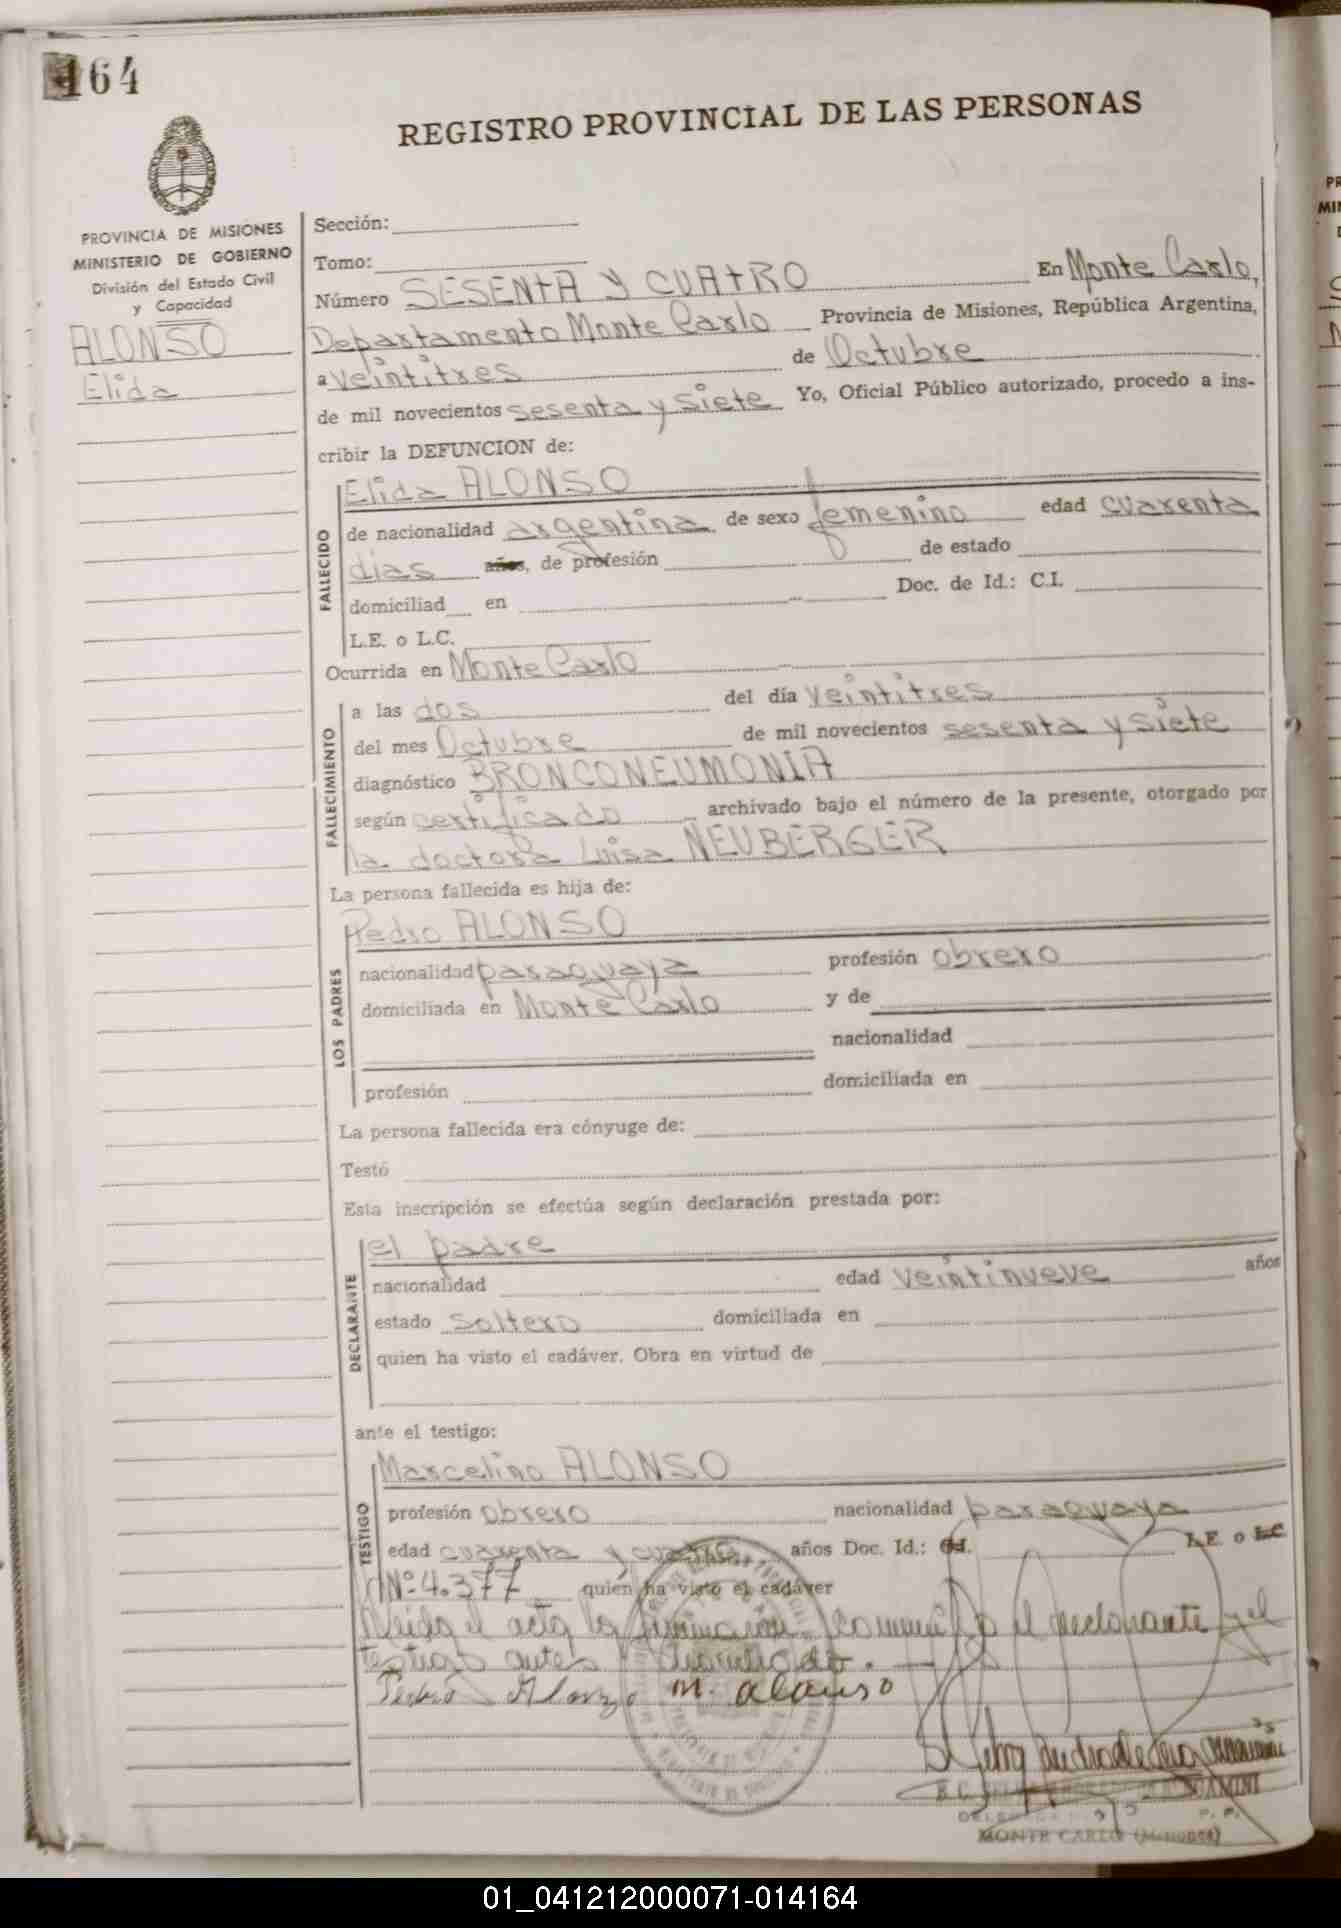 164
REGISTRO PROVINCIAL DE LAS PERSONAS
PROVINCIA DE MISIONES
MINISTERIO DE GOBIERNO
División del Estado Civil
y Capacidad
ALONSO
Elida
Sección:
Tomo:
Número SESENTA Y CUATRO En Monte Carlo,
Departamento Monte Carlo Provincia de Misiones, República Argentina,
a veintitres de Octubre
de mil novecientos sesenta y siete Yo, Oficial Público autorizado, procedo a ins-
cribir la DEFUNCION de:
FALLECIDO
Elida ALONSO
de nacionalidad argentina de sexo femenino edad cuarenta
dias años, de profesión de estado
domiciliad en Doc. de Id.: C.I.
L.E. o L.C.
Ocurrida en Monte Carlo
FALLECIMIENTO
a las dos del día veintitres
del mes Octubre de mil novecientos sesenta y siete
diagnóstico BRONCONEUMONIA
según certificado archivado bajo el número de la presente, otorgado por
la doctora Luisa NEUBERGER
La persona fallecida es hija de:
LOS PADRES
Pedro ALONSO
nacionalidad paraguaya profesión obrero
domiciliada en Monte Carlo y de
nacionalidad
profesión domiciliada en
La persona fallecida era cónyuge de:
Testó
Esta inscripción se efectúa según declaración prestada por:
DECLARANTE
el padre
nacionalidad edad veintinueve años
estado soltero domiciliada en
quien ha visto el cadáver. Obra en virtud de
ante el testigo:
TESTIGO
Marcelino ALONSO
profesión obrero nacionalidad paraguaya
edad cuarenta y años Doc. Id.: L.E. o L.C
Nº 4.377 quien ha visto el cadáver
el acta la conmigo el declarante y el
testigo antes
Pedro Alonzo M. alonso
MONTE CARLO (Misiones)
01_041212000071-014164